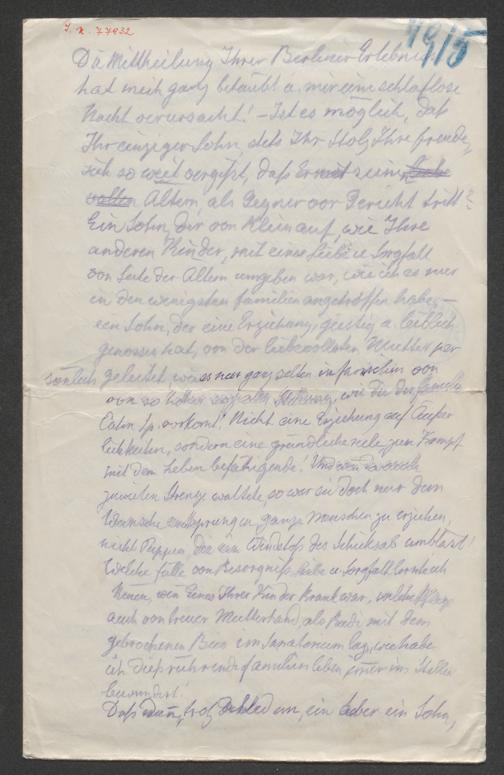 J.N. 77932
19/5
Die Mittheilung Ihrer Berliner Erlebnisse
hat mich ganz betäubt u. mir eine schlaflose
Nacht verursacht! – Ist es möglich, daß
Ihr einziger Sohn, stets Ihr Stolz Ihre Freude,
sich so weit vergißt, daß Er mit seinen
Altern, als Gegner vor Gericht tritt?
Ein Sohn, der von Klein auf, wie Ihre
anderen Kinder, mit einer Liebe u Sorgfalt
von Seite der Altern umgeben war, wie ich es nur
in den wenigsten Familien angetroffen habe, –
ein Sohn, der eine Erziehung, geistig u. leiblich
genossen hat, von der liebevollsten Mutter per
sönlich geleitet, wie es nur ganz selten in
von so wie die der Familie
vorkomt! Nicht eine Erziehung auf Äußer
lichkeiten, sondern eine gründliche viele zum Kampf
mit dem Leben befähigende! Und wenn
zuweilen Strenge waltete, so war sie doch nur dem
Wunsche entsprungen ganze Menschen zu erziehen,
nicht Puppen, die ein Windstoß des Schicksals umbläst!
Welche Fülle von Besorgniß Liebe u. Sorgfalt
wen Eines Ihrer Kinder Krank war,
auch von treuer Mutterhand, als mit dem
gebrochenen Bein im Sanatorium lag, wie habe
ich dieß rührende Familien leben im Stillen
bewundert!
Daß dann, trotz ein ein Sohn,